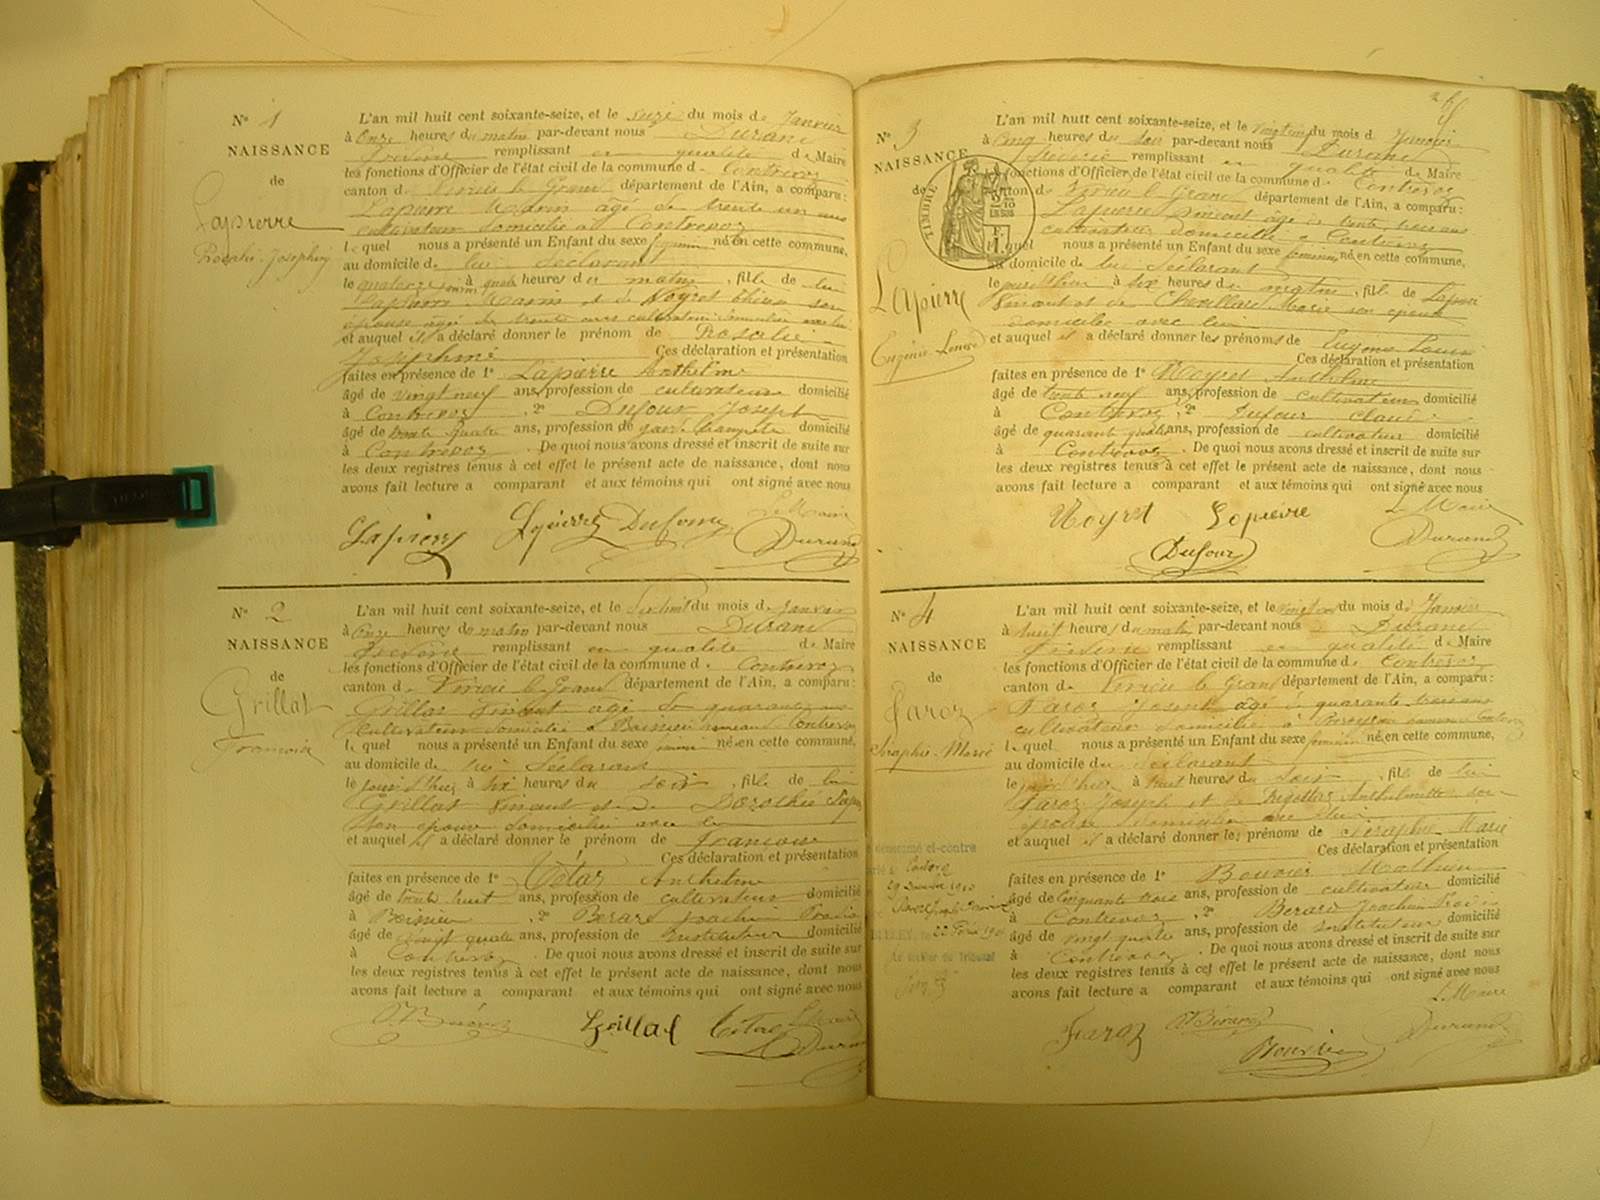 N° 1
NAISSANCE
de
Lapierre
Rosalie Joséphine
L'an mil huit cent soixante-seize, et le seize du mois de Janvier
à onze heures du matin par-devant nous Durand
remplissant en qualité de Maire
les fonctions d'Officier de l'état civil de la commune de Contrevoz
canton de Virieu le Grand département de l'Ain, a comparu :
Lapierre Marin âgé de trente un ans
cultivateur domicilié à Contrevoz
lequel nous a présenté un Enfant du sexe féminin né en cette commune,
au domicile de lui déclarant
le quatorze à heures du matin, fille de lui
Lapierre Marin et de Noyret son
épouse âgée de trente ans cultivateur domiciliée avec lui
et auquel il a déclaré donner le prénom de Rosalie
Joséphine Ces déclaration et présentation
faites en présence de 1° Lapierre Anthelme
âgé de vingt neuf ans, profession de cultivateur domicilié
à Contrevoz, 2° Dufour Joseph
âgé de trente quatre ans, profession de garde champêtre domicilié
à Contrevoz. De quoi nous avons dressé et inscrit de suite sur
les deux registres tenus à cet effet le présent acte de naissance, dont nous
avons fait lecture a comparant et aux témoins qui ont signé avec nous
Le Maire
Lapierre Lapierre Dufour Durand
N° 2
NAISSANCE
de
Grillat
L'an mil huit cent soixante-seize, et le du mois de Janvier
à onze heures du matin par-devant nous Durand
remplissant en qualité de Maire
les fonctions d'Officier de l'état civil de la commune de Contrevoz
canton de Virieu le Grand département de l'Ain, a comparu :
Grillat Vincent âgé de quarante ans
cultivateur domicilié à Boissieu hameau Contrevoz
lequel nous a présenté un Enfant du sexe féminin né en cette commune,
au domicile de lui déclarant
le jour d'hier à six heures du soir, fille de lui
Grillat Vincent et de Dorothée
son épouse domiciliée avec lui
et auquel il a déclaré donner le prénom de
Ces déclaration et présentation
faites en présence de 1° Tétaz Anthelme
âgé de trente huit ans, profession de cultivateur domicilié
à Boissieu, 2° Berard Joachim
âgé de vingt quatre ans, profession de instituteur domicilié
à Contrevoz. De quoi nous avons dressé et inscrit de suite sur
les deux registres tenus à cet effet le présent acte de naissance, dont nous
avons fait lecture a comparant et aux témoins qui ont signé avec nous
Le Maire
Bérard Grillat Tétaz Durand
N° 3
NAISSANCE
de
TIMBRE
Lapierre
Eugénie Louise
L'an mil huit cent soixante-seize, et le du mois de Janvier
à cinq heures du soir par-devant nous Durand
remplissant en qualité de Maire
les fonctions d'Officier de l'état civil de la commune de Contrevoz
canton de Virieu le Grand département de l'Ain, a comparu :
Lapierre Vincent âgé de trente ans
cultivateur domicilié à Contrevoz
lequel nous a présenté un Enfant du sexe féminin né en cette commune,
au domicile de lui déclarant
le jour d'hier à six heures du matin, fille de Lapierre
Vincent et de Chevillard Marie son épouse
domiciliée avec lui
et auquel il a déclaré donner les prénoms de Eugénie Louise
Ces déclaration et présentation
faites en présence de 1° Noyret Anthelme
âgé de trente neuf ans, profession de cultivateur domicilié
à Contrevoz, 2° Dufour Claude
âgé de quarante quatre ans, profession de cultivateur domicilié
à Contrevoz. De quoi nous avons dressé et inscrit de suite sur
les deux registres tenus à cet effet le présent acte de naissance, dont nous
avons fait lecture a comparant et aux témoins qui ont signé avec nous
Noyret Lapierre Le Maire
Dufour Durand
N° 4
NAISSANCE
de
Faroz
Séraphie Marie
L'an mil huit cent soixante-seize, et le du mois de Janvier
à huit heures du matin par-devant nous Durand
remplissant en qualité de Maire
les fonctions d'Officier de l'état civil de la commune de Contrevoz
canton de Virieu le Grand département de l'Ain, a comparu :
Faroz Joseph âgé de quarante trois ans
cultivateur domicilié à hameau Contrevoz
lequel nous a présenté un Enfant du sexe féminin né en cette commune,
au domicile du déclarant
le jour d'hier à huit heures du soir, fille de lui
Faroz Joseph et de Anthelmette son
épouse domiciliée avec lui
et auquel il a déclaré donner les prénoms de Séraphie Marie
Ces déclaration et présentation
faites en présence de 1° Bouvier
âgé de cinquante trois ans, profession de cultivateur domicilié
à Contrevoz, 2° Berard Joachim
âgé de vingt quatre ans, profession de instituteur domicilié
à Contrevoz. De quoi nous avons dressé et inscrit de suite sur
les deux registres tenus à cet effet le présent acte de naissance, dont nous
avons fait lecture a comparant et aux témoins qui ont signé avec nous
Le Maire
Faroz Bérard Durand
Bouvier